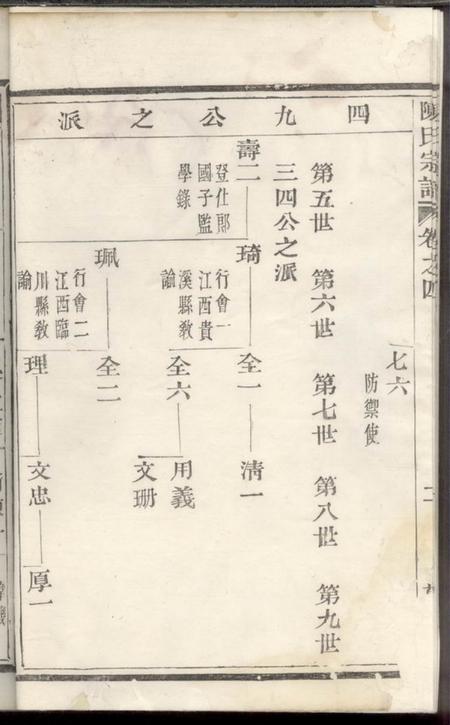 陳氏宗譜 卷之四
四九公之派
七六
防禦使
第五世 第六世 第七世 第八世 第九世
三四公之派
壽二
登仕郎
國子監
學錄
琦
行會一
江西貴
溪縣教
諭
全一 清一
全六 用義
文珊
珮
行會二
江西臨
川縣教
諭
全二
理 文忠 厚一